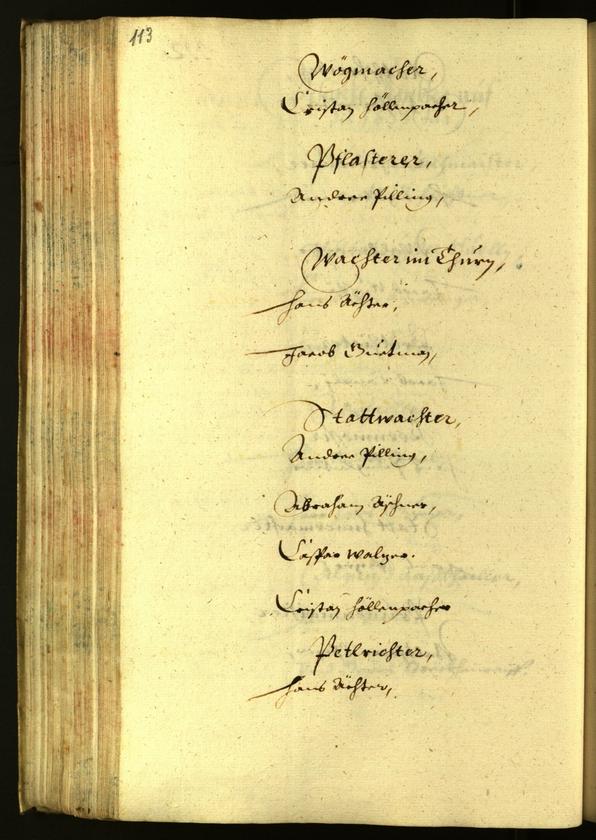 113
Wögmacher,
Cristan Höllenpacher,
Pflasterer,
Andree Pilling,
Wachter im Thurn,
Hans Achter,
Jacob Guetman,
Stattwachter,
Andree Pilling,
Abraham Äschner,
Caspar Walzer.
Cristan Höllenpacher
Petlrichter,
Hans Achter,